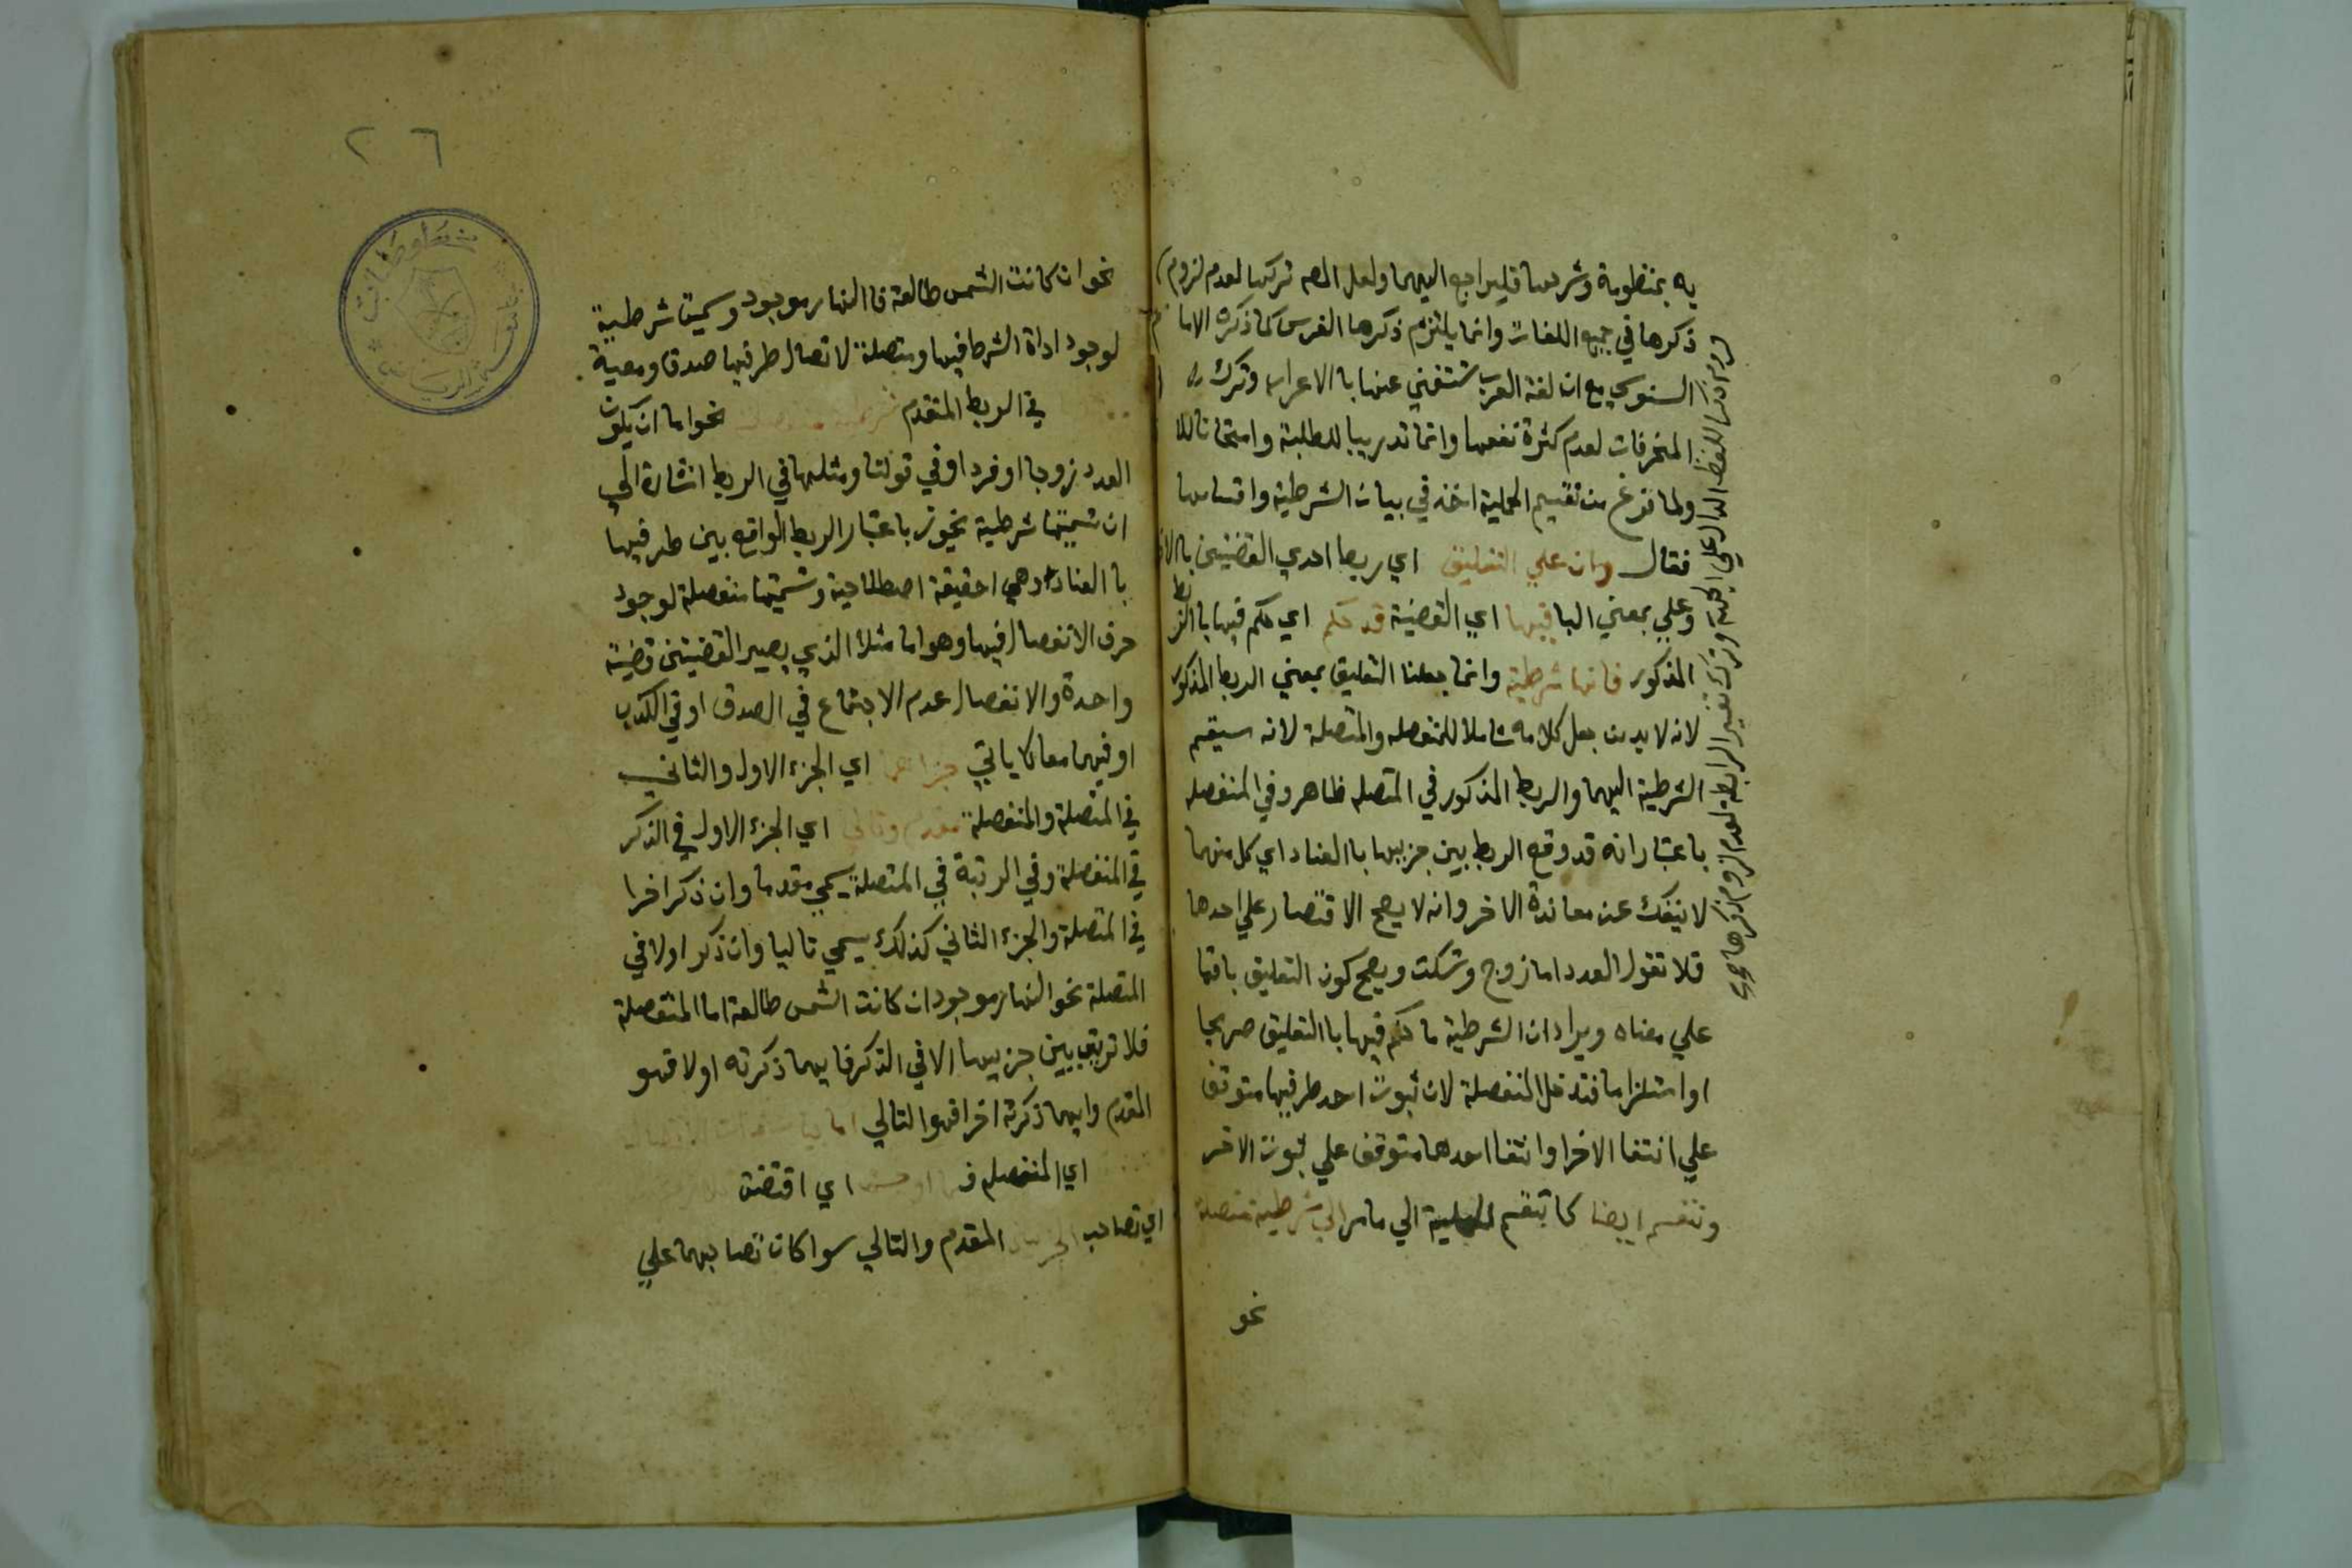 به بمنظومة وشرحها فليراجع اليهما ولعل المص تركها لعدم لزوم
ذكرها في جميع اللغات وانما يلتزم ذكرها الفرس كما ذكره الاما م
السنوسي مع ان لغة العرب تستغني عنها با الاعراب وترك
المنحرفات لعدم كثرة نفعها وانما تدريبا للطلبة وامتحانا
ولما فرغ من تقسيم الحملية اخذ في بيان الشرطية واقسامها
فقال وان علي التعليق اي ربط احدي القضيتين
وعلي بمعني البا فيها اي القضية قد حكم اي حكم فيها با الربط
المذكور فانها شرطية وانما جعلنا التعليق بمعني الربط المذكور
لانه لا بد من جعل كلامه شاملا للمنفصله والمتصلة لانه سيقسم
الشرطية اليهما والربط المذكور في المتصله ظاهر وفي المنفصله
باعتبار انه قد وقع الربط بين جزييها با العناد اي كل منهما
لا ينفك عن معاندة الاخر وانه لا يصح الاقتصار علي احدها
فلا تقول العدد اما زوج وتسكت ويصح كون التعليق باقيا
علي معناه ويراد ان الشرطية ما حكم فيها با التعليق صريحا
او استلزاما فتدخل المنفصلة لان ثبوت احد طرفيها متوقف
علي انتفا الاخر او انتفا احدهما متوقف علي ثبوت الاخر
وتنقسم ايضا كما تنقسم الحملية الي ما مر الي شرطية متصلة
نحو
اللفظ الدال علي وترك تفسير الرابط لعدم لزوم ذكرها
٢٦
نحو ان كانت الشمس طالعة فا النهار موجود وسميت شرطية
لوجود اداة الشرط فيها ومتصلة لاتصال طرفيها صدقا ومعية
في الربط المتقدم شرطية نحو اما ان يكون
العدد زوجا او فردا وفي قولنا ومثلها في الربط اشارة الي
ان تسميتها شرطية تجوز باعتبار الربط الواقع بين طرفيها
با العناد وهي حقيقة اصطلاحية وتسميتها منفصلة لوجود
حرف الانفصال فيها وهو اما مثلا الذي يصير القضيتين قضية
واحدة والانفصال عدم الاجتماع في الصدق او في الكذب
او فيهما معا كما ياتي جزاهما اي الجزء الاول والثاني
في المتصلة والمنفصلة مقدم وتالي اي الجزء الاول في الذكر
في المنفصلة وفي الرتبة في المتصلة يسمي مقدما وان ذكر اخرا
في المتصلة والجزء الثاني كذلك يسمي تاليا وان ذكر اولا في
المتصلة نحو النهار موجود ان كانت الشمس طالعة اما المنفصلة
فلا ترتيب بين جزييها الا في الذكر فايهما ذكرته اولا فهو
المقدم وايهما ذكرته اخرا فهو التالي اما
اي المنفصله اي اقتضت
اي تصاحب الجزئين المقدم والتالي سوا كان تصاحبهما علي